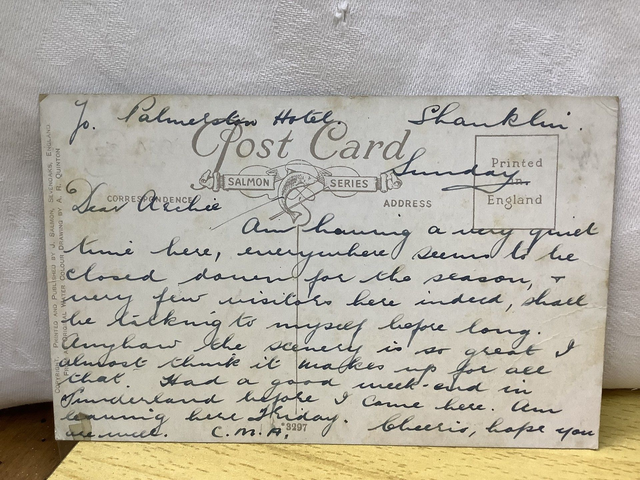 To. Palmerston Hotel. Shanklin.
Post Card
Sunday
SALMON SERIES
Printed
in
England
CORRESPONDENCE
ADDRESS
Dear Archie
Am having a very quiet
time here, everywhere seems to be
closed down for the season, +
very few visitors here indeed, shall
be talking to myself before long.
Anyhow the scenery is so great I
almost think it makes up for all
that. Had a good week-end in
Sunderland before I came here. Am
leaving here Friday. Cheerio, hope you
are well. C.M.A.
*3297
COPYRIGHT. PRINTED AND PUBLISHED BY J. SALMON, SEVENOAKS, ENGLAND
FROM AN ORIGINAL WATER COLOUR DRAWING BY A. R. QUINTON